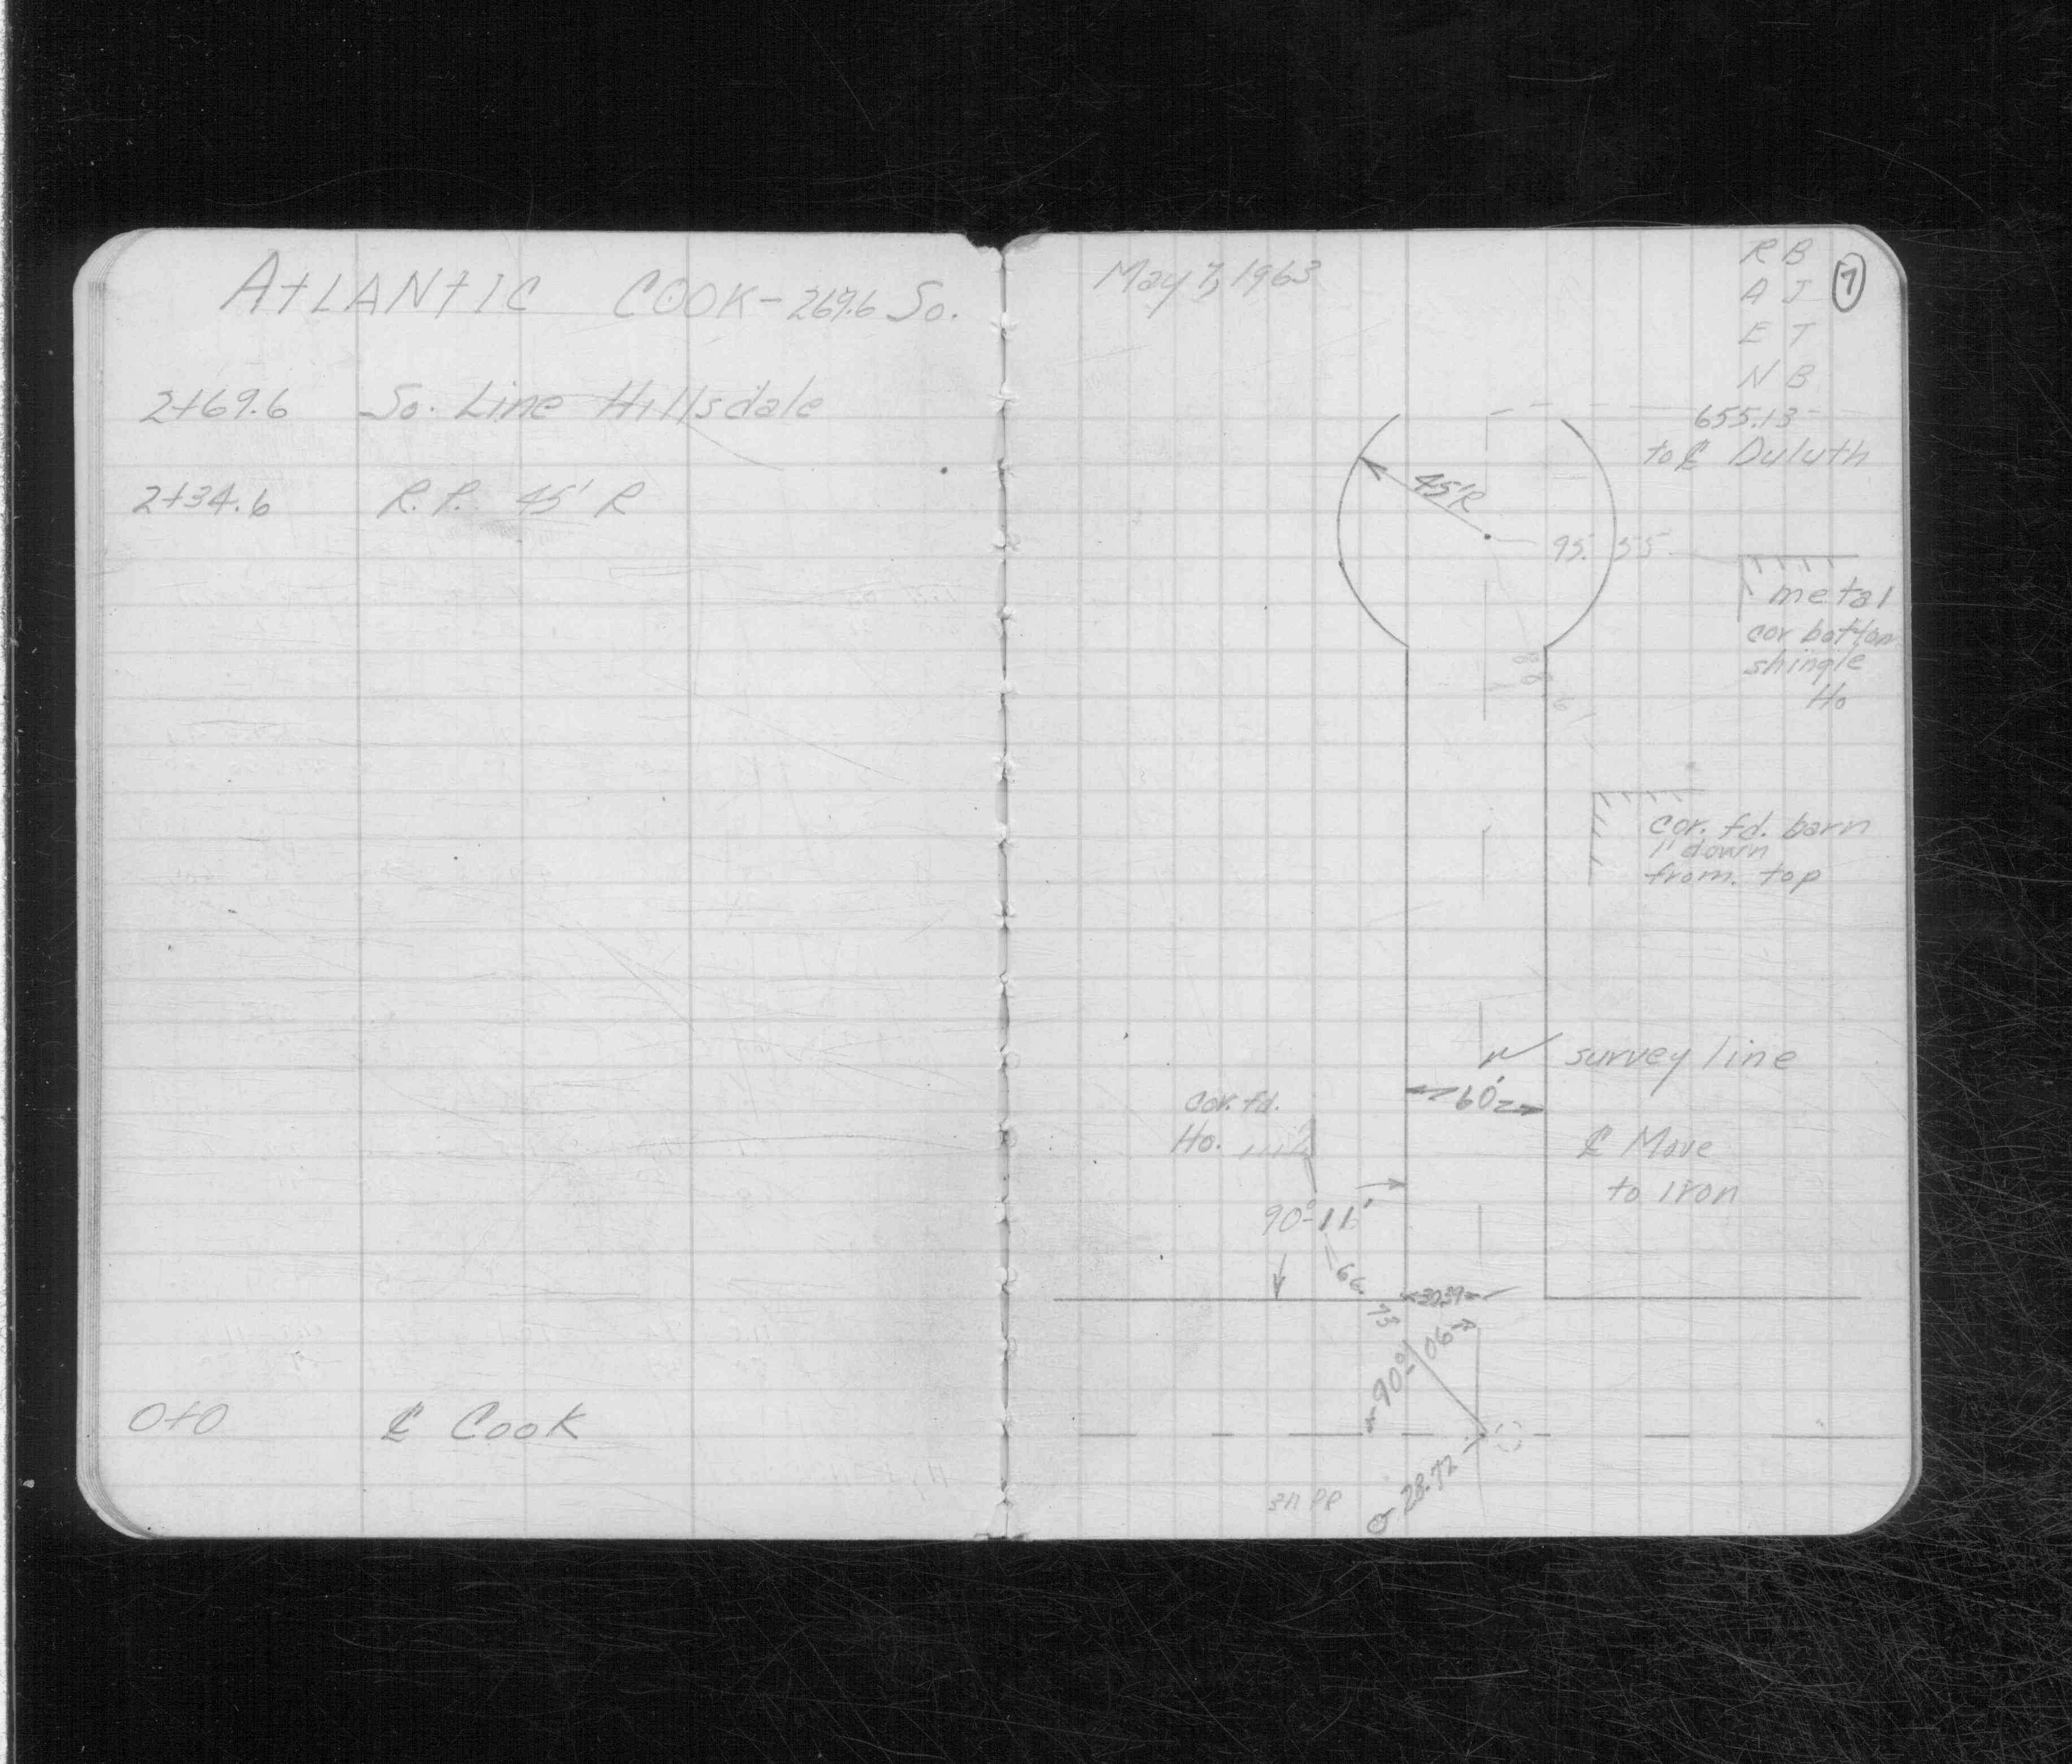 AtLANtIC COOK - 269.6 So.
2+69.6 So. Line Hillsdale
2+34.6 R.P. 45' R
0+0 ℄ Cook
May 7, 1963
R B
A J
E T
N B
7
655.13
to ℄ Duluth
45'R
95.55
metal
cor bottom
shingle
Ho
88.61
cor. fd. barn
1' down
from. top
survey line
60'
cor. fd.
Ho.
℄ Move
to Iron
90°-11'
66.73
30.39
90° 06'
28.72